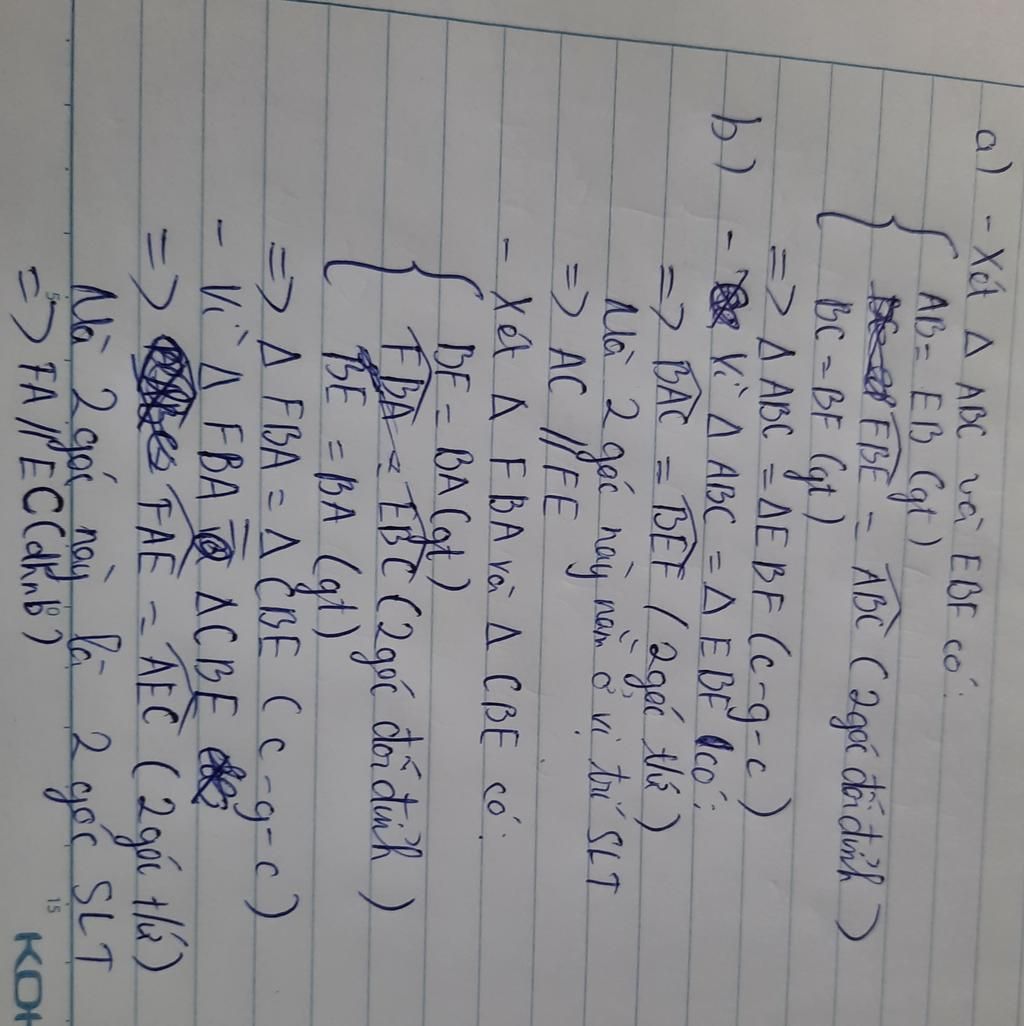 a) - Xét Δ ABC và EBF có:
AB = EB (gt)
FBE = ABC (2 góc đối đỉnh)
BC = BF (gt)
=> Δ ABC = Δ EBF (c-g-c)
b) - Vì Δ ABC = Δ EBF có:
=> BAC = BEF (2 góc t/ứ)
Mà 2 góc này nằm ở vị trí SLT
=> AC // FE
- Xét Δ FBA và Δ CBE có:
BF = BA (gt)
FBA = EBC (2 góc đối đỉnh)
BE = BA (gt)
=> Δ FBA = Δ CBE (c-g-c)
- Vì Δ FBA = Δ CBE
=> FAE = AEC (2 góc t/ứ)
Mà 2 góc này là 2 góc SLT
=> FA // EC (dhnb)
5 10 15